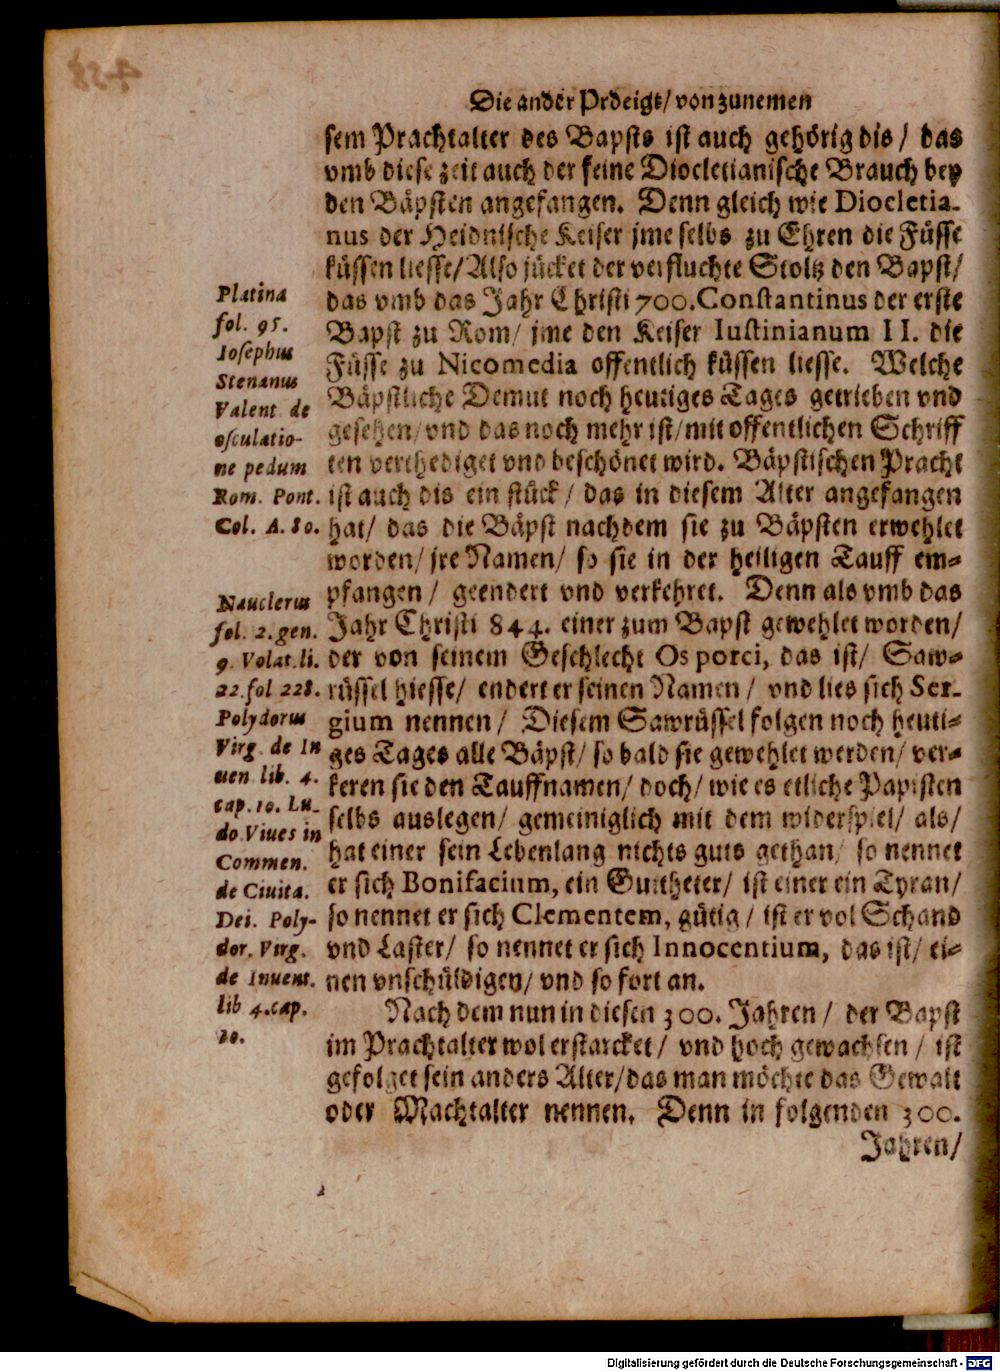 Die ander Prdeigt/ von zunemen
sem Prachtalter des Bapsts ist auch gehörig dis/ das
vmb diese zeit auch der feine Diocletianische Brauch bey
den Bäpsten angefangen. Denn gleich wie Diocletia-
nus der Heidnische Keiser jme selbs zu Ehren die Füsse
küssen liesse/ Also jücket der verfluchte Stoltz den Bapst/
das vmb das Jahr Christi 700. Constantinus der erste
Bapst zu Rom/ jme den Keiser Iustinianum II. die
Füsse zu Nicomedia offentlich küssen liesse. Welche
Bäpstliche Demut noch heutiges Tages getrieben vnd
gesehen/ vnd das noch mehr ist/ mit offentlichen Schriff
ten verthediget vnd beschönet wird. Bäpstischen Pracht
ist auch dis ein stück/ das in diesem Alter angefangen
hat/ das die Bäpst nachdem sie zu Bäpsten erwehlet
worden/ jre Namen/ so sie in der heiligen Tauff em-
pfangen/ geendert vnd verkehret. Denn als vmb das
Jahr Christi 844. einer zum Bapst gewehlet worden/
der von seinem Geschlecht Os porci, das ist/ Saw-
rüssel hiesse/ endert er seinen Namen/ vnd lies sich Ser-
gium nennen/ Diesem Sawrüssel folgen noch heuti-
ges Tages alle Bäpst/ so bald sie gewehlet werden/ ver-
keren sie den Tauffnamen/ doch/ wie es etliche Papisten
selbs auslegen/ gemeiniglich mit dem widerspiel/ als/
hat einer sein Lebenlang nichts guts gethan/ so nennet
er sich Bonifacium, ein Guttheter/ ist einer ein Tyran/
so nennet er sich Clementem, gütig/ ist er vol Schand
vnd Laster/ so nennet er sich Innocentium, das ist/ ei-
nen vnschüldigen/ vnd so fort an.
Nach dem nun in diesen 300. Jahren/ der Bapst
im Prachtalter wol erstarcket/ vnd hoch gewachsen/ ist
gefolget sein anders Alter/ das man möchte das Gewalt
oder Machtalter nennen. Denn in folgenden 300.
Jahren/
Platina
fol. 95.
Iosephus
Stenanus
Valent de
osculatio-
ne pedum
Rom. Pont.
Col. A. 80.
Nauclerus
fol. 2. gen.
9. Volat. li.
22. fol 228.
Polydorus
Virg. de In
uen. lib. 4.
cap. 10. Lu-
do. Viues in
Commen.
de Ciuita.
Dei. Poly-
dor. Virg.
de Inuent.
lib 4. cap.
10.
Digitalisierung gefördert durch die Deutsche Forschungsgemeinschaft - DFG